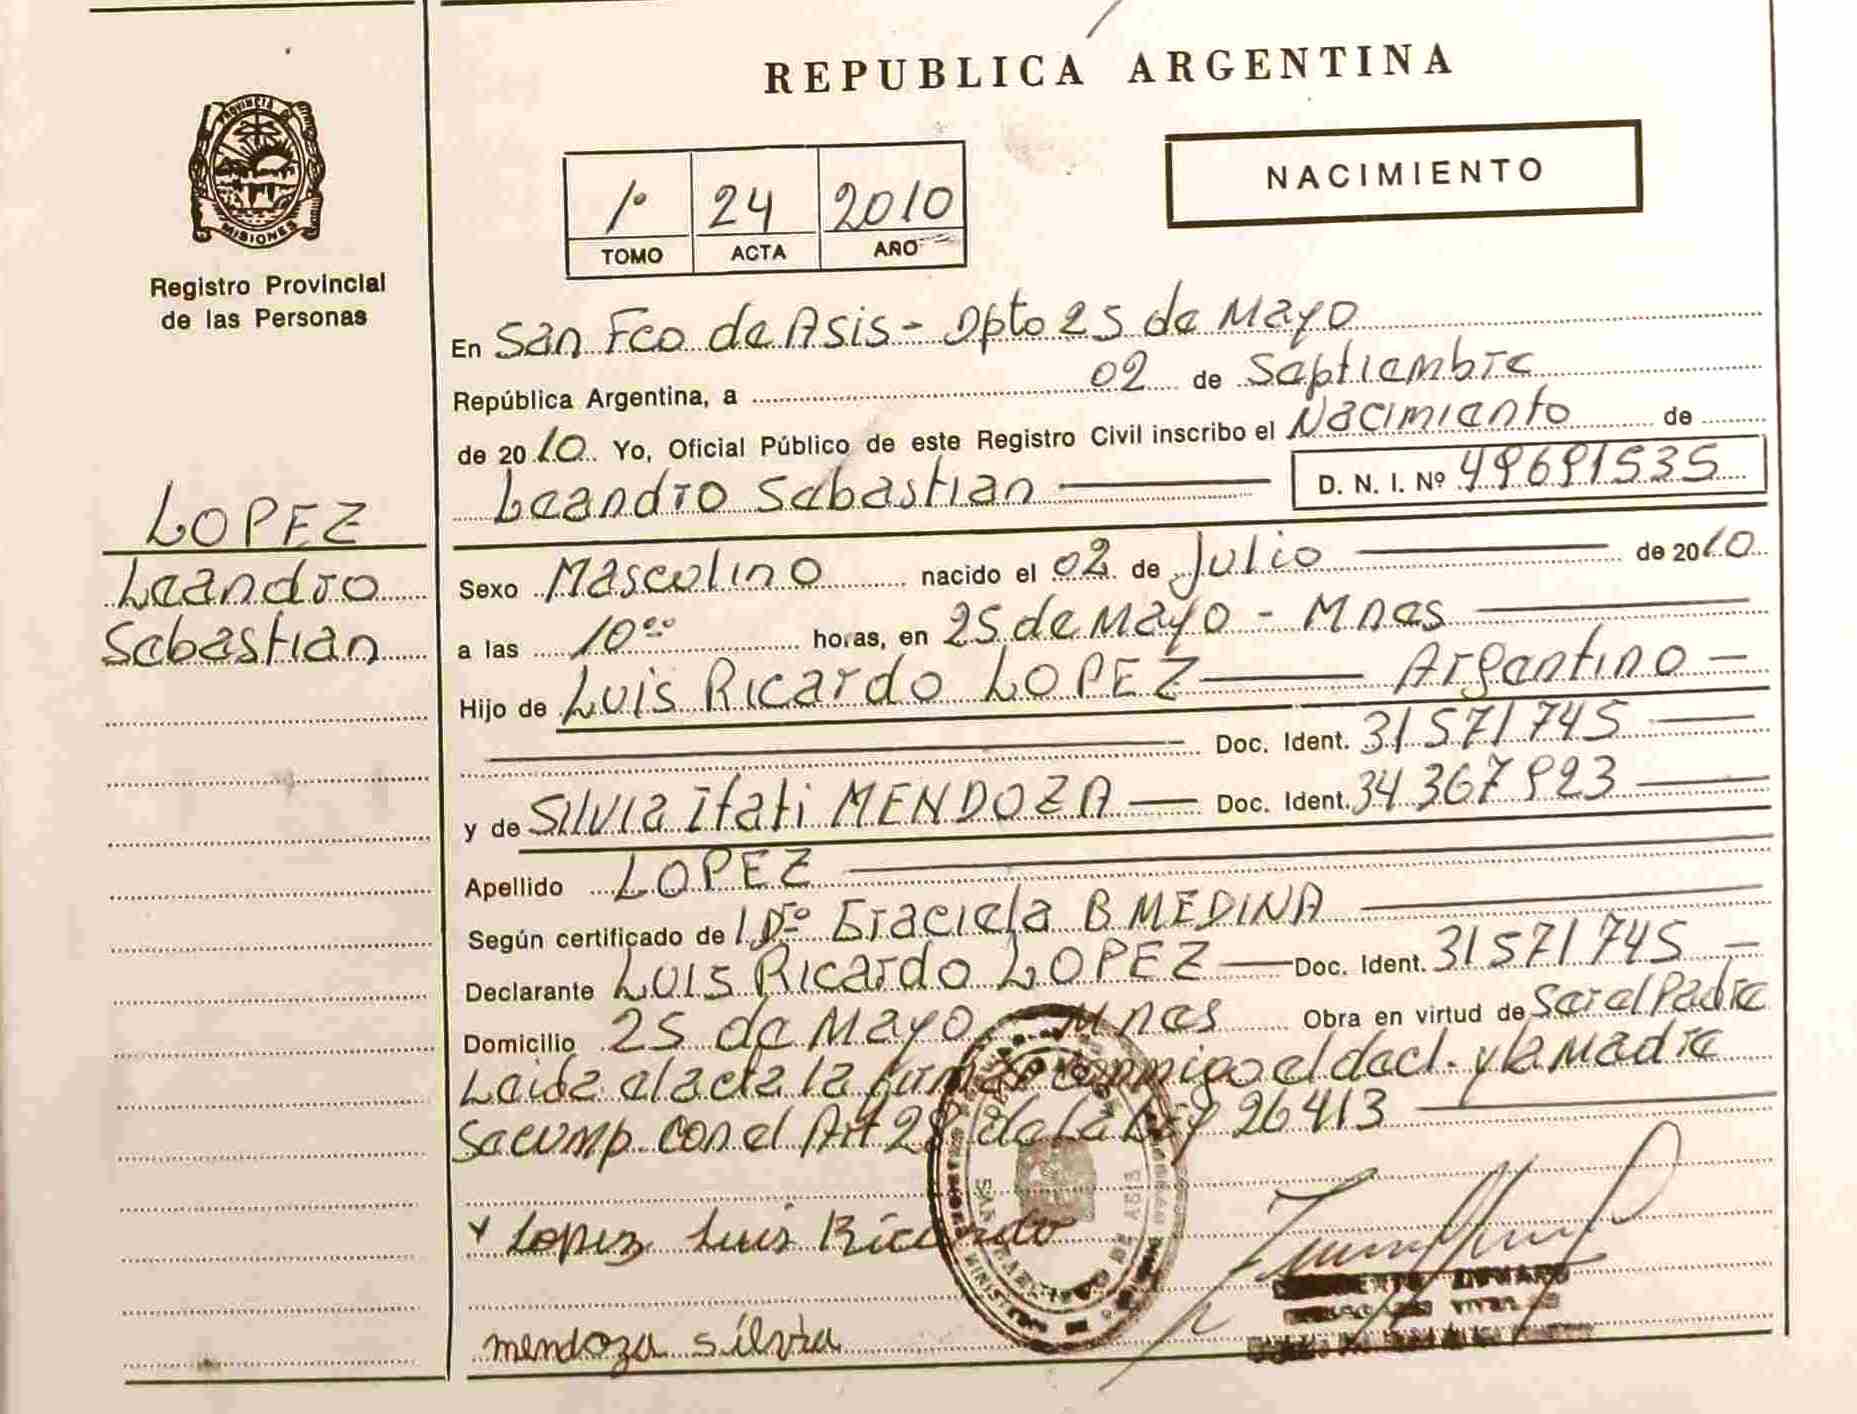 PROVINCIA DE
MISIONES
Registro Provincial
de las Personas
LOPEZ
Leandro
Sebastian
REPUBLICA ARGENTINA
1º 24 2010
TOMO ACTA AÑO
NACIMIENTO
En San Fco de Asis - Dpto 25 de Mayo
República Argentina, a 02 de Septiembre
de 2010 Yo, Oficial Público de este Registro Civil inscribo el Nacimiento de
Leandro Sebastian D. N. I. Nº 49691535
Sexo Mascolino nacido el 02 de Julio de 2010
a las 10ºº horas, en 25 de Mayo - Mnes
Hijo de Luis Ricardo LOPEZ Argentino
Doc. Ident. 31571745
y de Silvia Itati MENDOZA Doc. Ident. 34367923
Apellido LOPEZ
Según certificado de Graciela B MEDINA
Declarante Luis Ricardo LOPEZ Doc. Ident. 31571745
Domicilio 25 de Mayo Mnes Obra en virtud de Ser el Padre
Leida el acta la firman conmigo el decl. y la Madre
Se cump. con el Art 28 de la Ley 26413
Lopez Luis Ricardo
mendoza silvia
SAN FRANCISCO DE ASIS